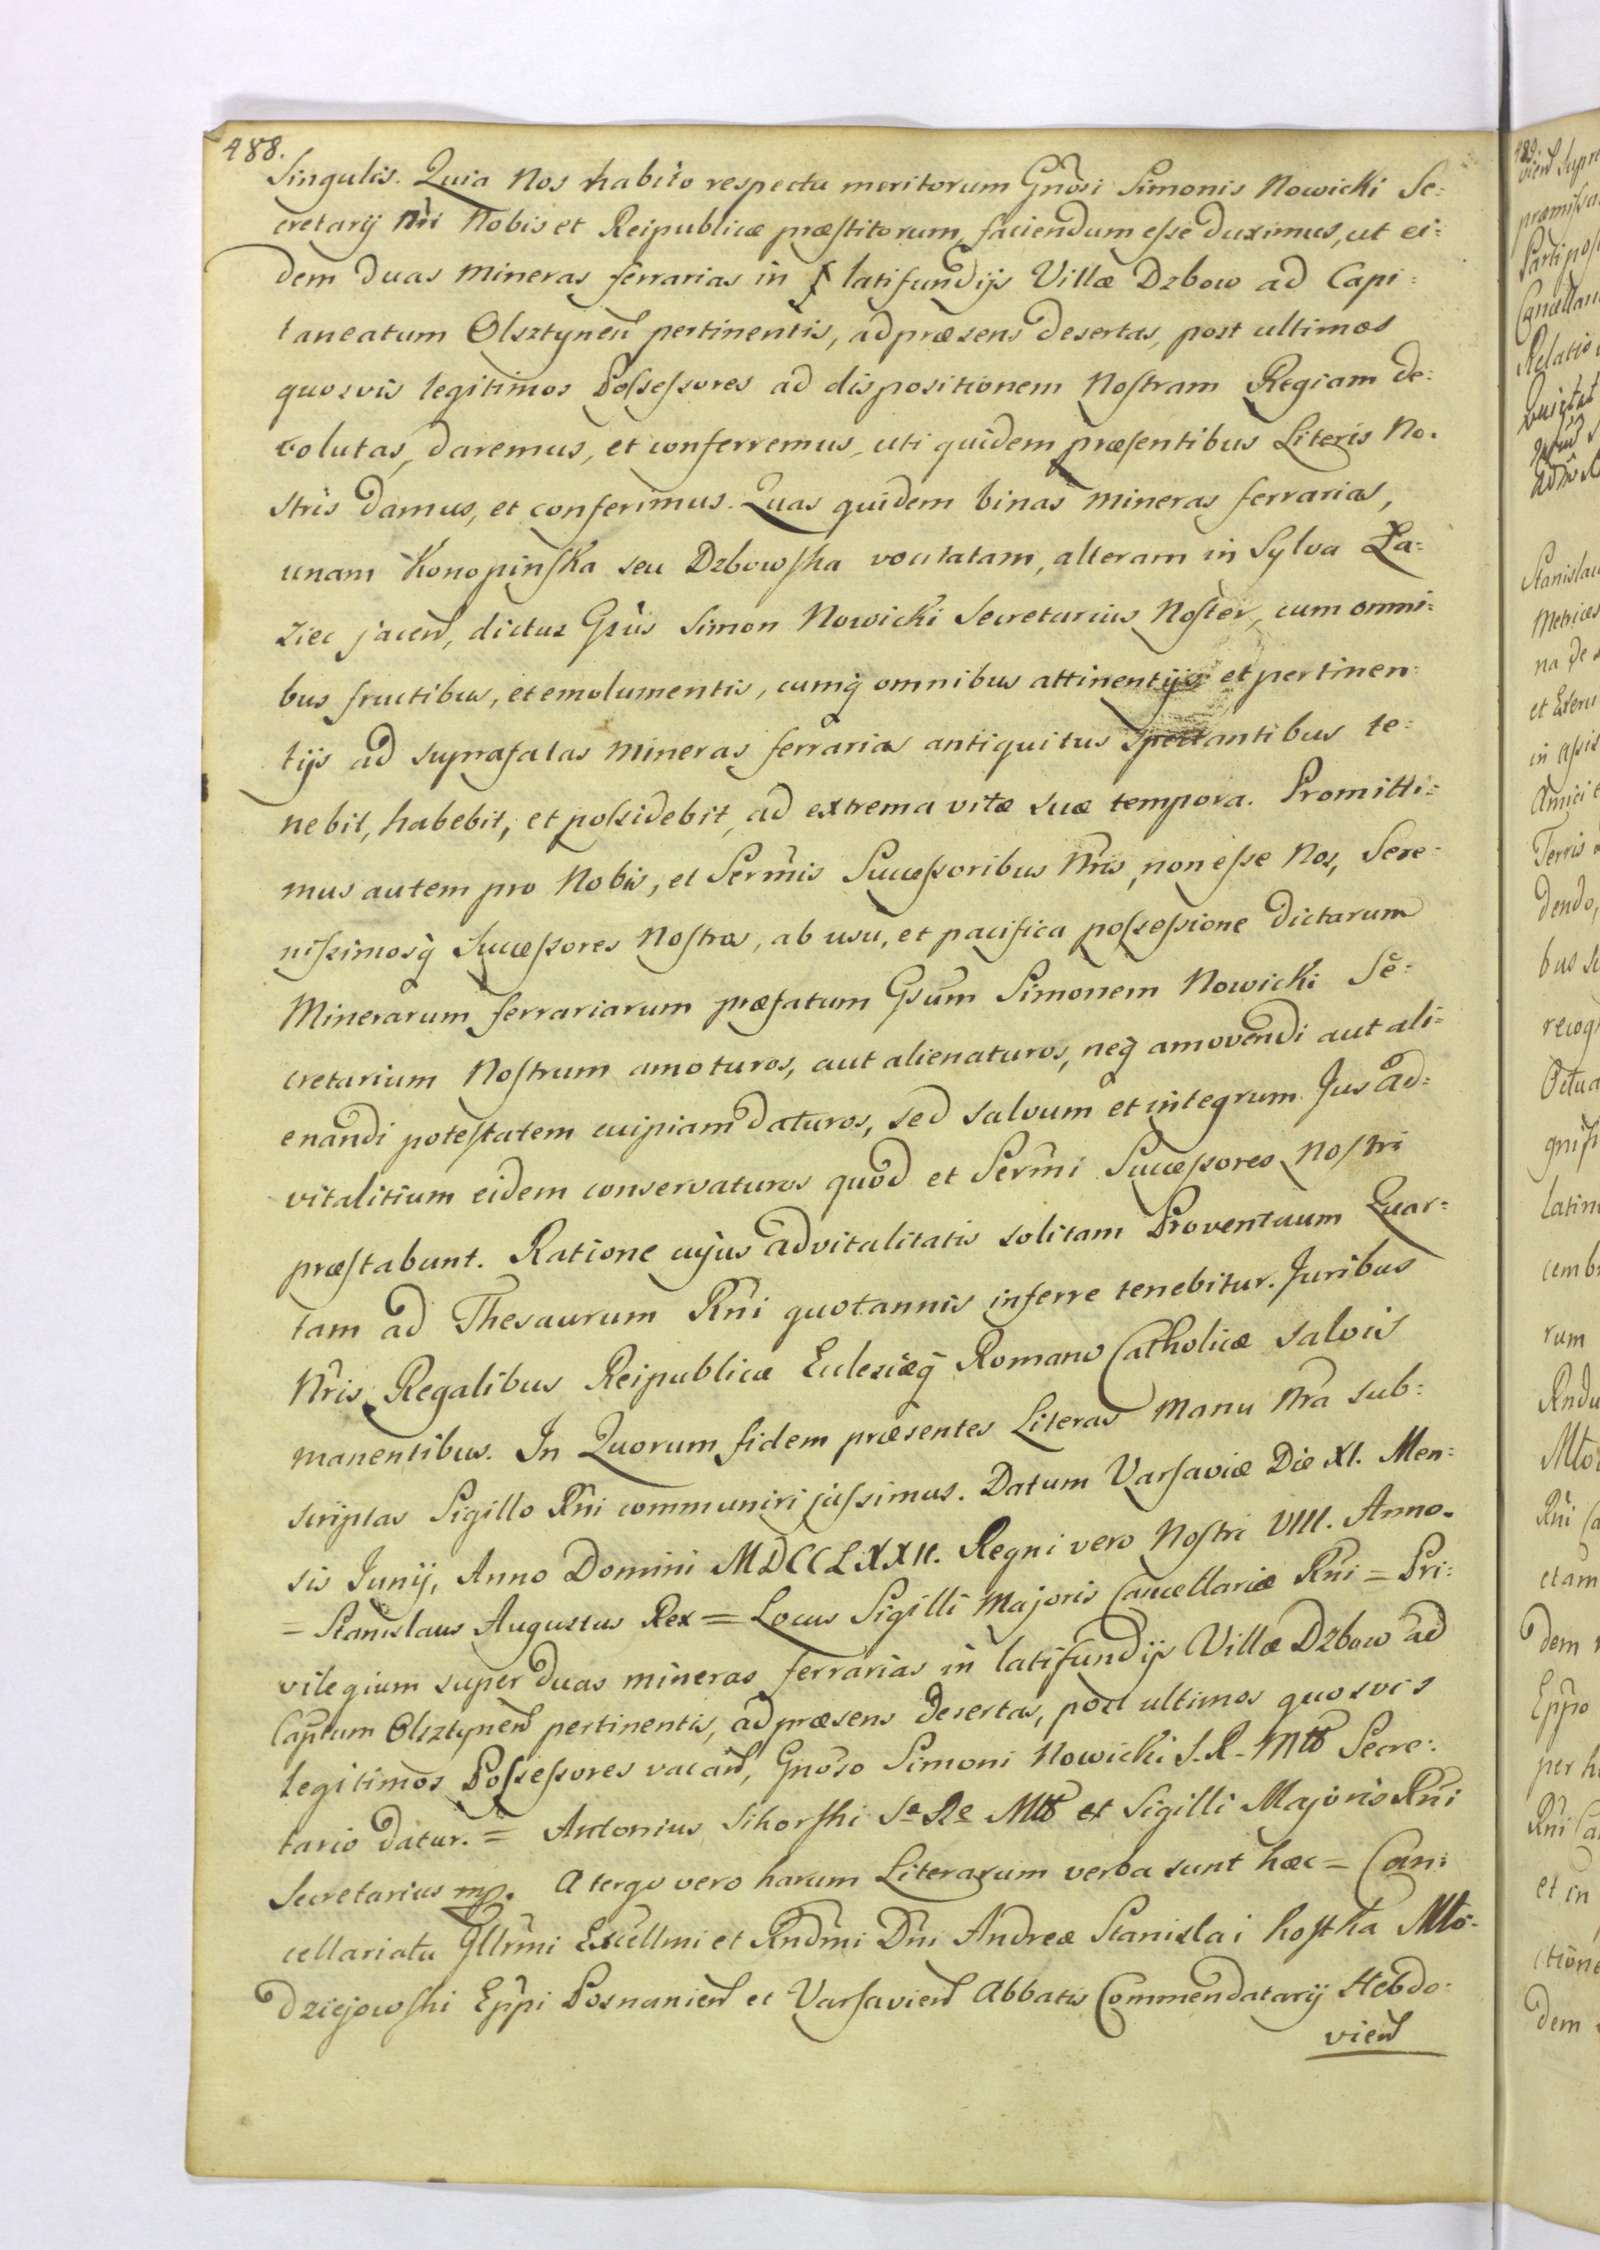 488.
Singulis. Quia Nos habito respectu meritorum Gnõsi Simonis Nowicki Se:
cretarij Nri Nobis et Reipublicæ præstitorum, faciendum esse duximus, ut ei:
dem duas mineras ferrarias in latifundijs Villæ Dzbow ad Capi:
taneatum Olsztynen̄ pertinentis, ad præsens desertas, post ultimos
quosvis legitimos Possessores ad dispositionem Nostram Regiam de:
volutas, daremus, et conferremus, uti quidem præsentibus Literis No.
stris damus, et conferimus. Quas quidem binas mineras ferrarias,
unam Konopinska seu Dzbowska vocitatam, alteram in Sylva Ła:
ziec jacen̄, dictus Gsũs Simon Nowicki Secretarius Noster, cum omni:
bus fructibus, et emolumentis, cumq̃ omnibus attinentijs et pertinen:
tijs ad suprafatas mineras ferrarias antiquitus spectantibus te:
nebit, habebit, et possidebit, ad extrema vitæ suæ tempora. Promitti:
mus autem pro Nobis, et Sermĩs Successoribus Nr̃is, non esse Nos, Sere:
nissimosq̃ Successores Nostros, ab usu, et pacifica possessione dictarum
Minerarum ferrariarum præfatum Gsũm Simonem Nowicki Se:
cretarium Nostrum amoturos, aut alienaturos, neq̃ amovendi aut ali:
enandi potestatem cuipiam daturos, sed salvum et integrum Jus ad:
vitalitium eidem conservaturos quod et Sermĩ Successores Nostri
præstabunt. Ratione cujus advitalitatis solitam Proventuum Quar:
tam ad Thesaurum Rñi quotannis inferre tenebitur. Juribus
Nr̃is Regalibus Reipublicæ Eclesiæq̃ Romano Catholicæ salvis
manentibus. In Quorum fidem præsentes Literas Manu Nr̃a sub:
scriptas Sigillo Rñi communiri jussimus. Datum Varsaviæ Die XI. Men:
sis Junij, Anno Domini MDCCLXXII. Regni vero Nostri VIII. Anno.
= Stanislaus Augustus Rex = Locus Sigilli Majoris Cancellariæ Rñi = Pri:
vilegium super duas mineras ferrarias in latifundijs Villæ Dzbow ad
Cap̃tum Olsztynen̄ pertinentis, ad præsens desertas, post ultimos quosvis
legitimos Possessores vacan̄, Gnõso Simoni Nowicki S. R. Mtt̃s Secre:
tario datur. = Antonius Sikorski Sæ Ræ Mtt̃s et Sigilli Majoris Rñi
Secretarius mp. A tergo vero harum Literarum verba sunt hæc = Can:
cellariatu Illr̃mi Excellmi et Rndm̃i Dñi Andreæ Stanislai Kostka Mło:
dziejowski Epp̃i Posnanien̄ et Varsavien̄ Abbatis Commendatarij Hebdo:
vien̄